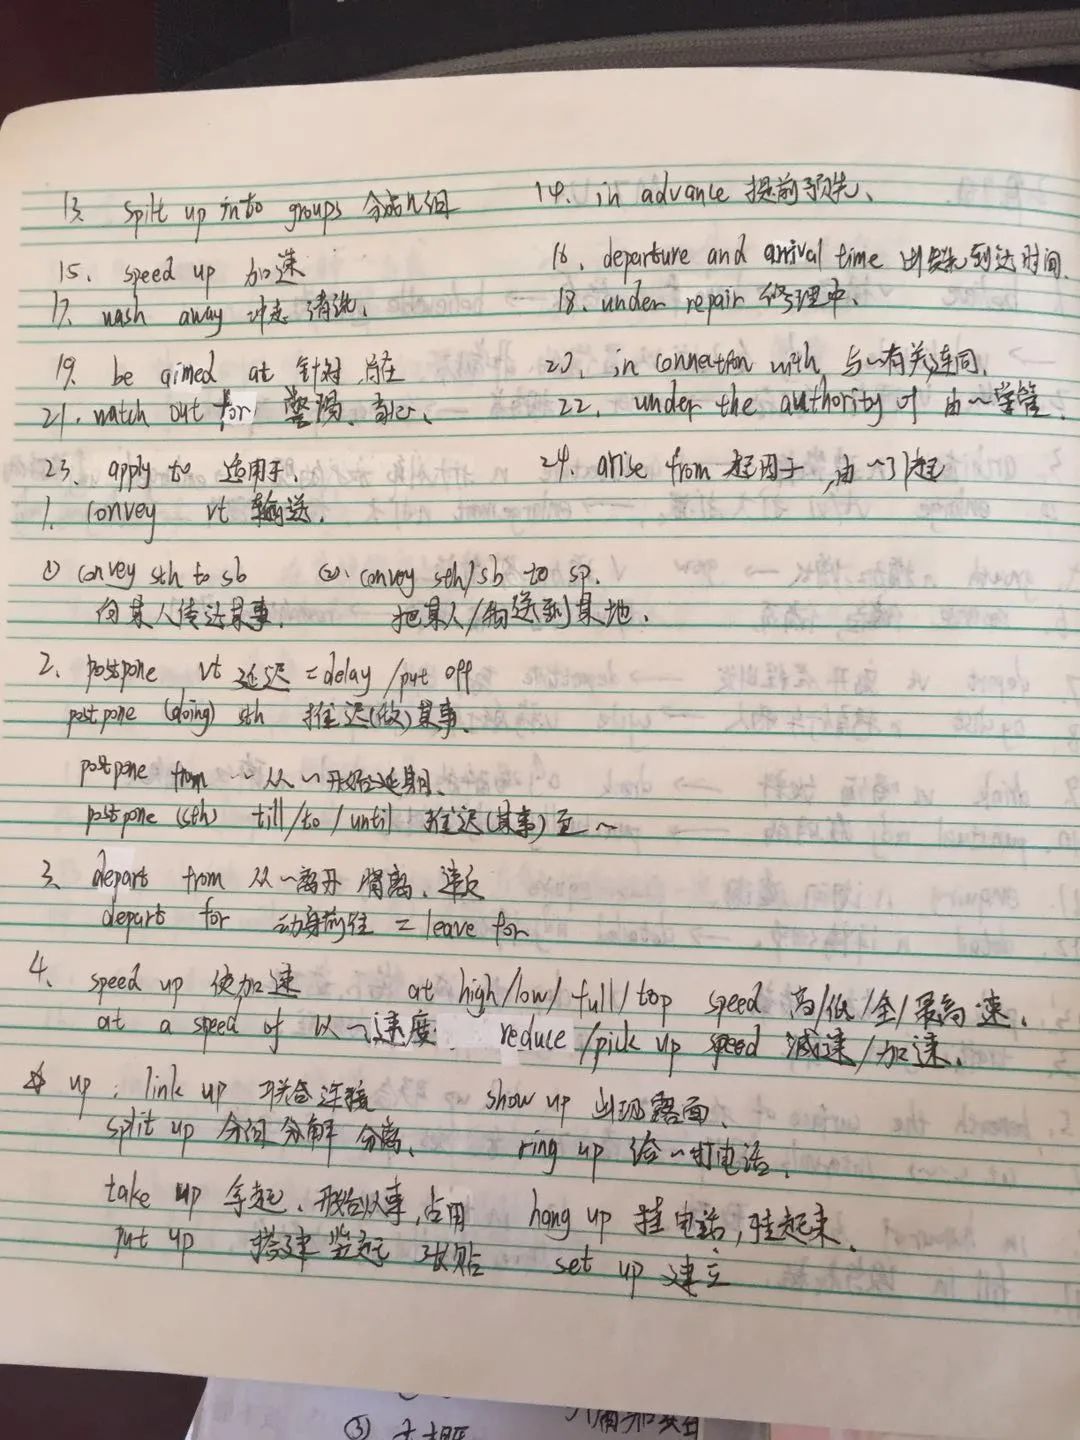 13、 split up into groups 分成几组 14、in advance 提前预先、
15、 speed up 加速 16、departure and arrival time 出发到达时间.
17、wash away 冲走 清洗、 18、under repair 修理中、
19、be aimed at 针对 旨在 20、in connection with 与~有关连同、
21、watch out for 警惕、留心、 22、under the authority of 由~掌管
23、apply to 适用于、 24、arise from 起因于,由~引起
1、convey vt 输送、
① convey sth to sb ②、convey sth/sb to sp.
向某人传达某事. 把某人/物送到某地、
2、postpone vt 延迟 =delay /put off
postpone (doing) sth 推迟(做)某事、
postpone from ~ 从~开始延期、
postpone (sth) till/to/until 推迟(某事)至~
3、depart from 从~离开 背离、违反
depart for 动身前往 = leave for
4、speed up 使加速 at high/low/full/top speed 高/低/全/最高速、
at a speed of 以~速度. reduce/pick up speed 减速/加速、
☆ up: link up 联合连接 show up 出现露面、
split up 分组 分解 分离、 ring up 给~打电话、
take up 拿起、开始从事,占用 hang up 挂电话,挂起来、
put up 搭建 竖起 张贴 set up 建立
③ 大概